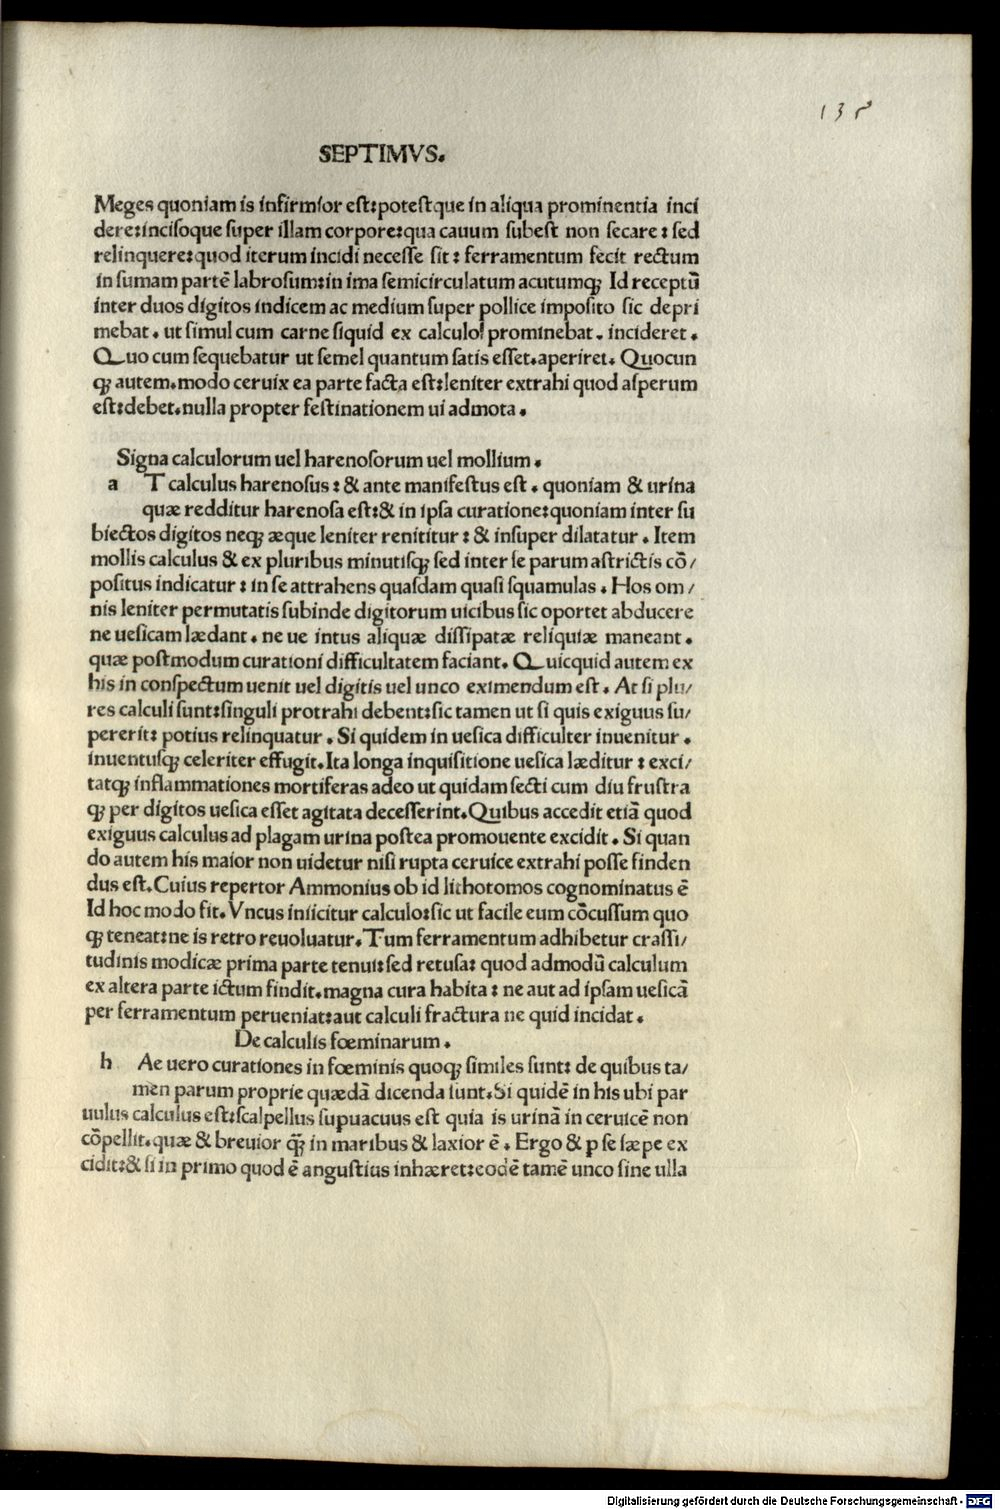 135
SEPTIMVS.
Meges quoniam is infirmior est:potestque in aliqua prominentia inci
dere:incisoque super illam corpore:qua cauum subest non secare : sed
relinquere:quod iterum incidi necesse sit : ferramentum fecit rectum
in sumam partē labrosum:in ima semicirculatum acutumq; Id receptū
inter duos digitos indicem ac medium super pollice imposito sic depri
mebat . ut simul cum carne siquid ex calculo prominebat . incideret .
Quo cum sequebatur ut semel quantum satis esset.aperiret. Quocun
q; autem.modo ceruix ea parte facta est:leniter extrahi quod asperum
est:debet.nulla propter festinationem ui admota .
Signa calculorum uel harenosorum uel mollium .
a T calculus harenosus : & ante manifestus est . quoniam & urina
quæ redditur harenosa est:& in ipsa curatione:quoniam inter su
biectos digitos neq; æque leniter renititur : & insuper dilatatur . Item
mollis calculus & ex pluribus minutisq; sed inter se parum astrictis cō/
positus indicatur : in se attrahens quasdam quasi squamulas . Hos om/
nis leniter permutatis subinde digitorum uicibus sic oportet abducere
ne uesicam lædant . ne ue intus aliquæ dissipatæ reliquiæ maneant .
quæ postmodum curationi difficultatem faciant. Quicquid autem ex
his in conspectum uenit uel digitis uel unco eximendum est . At si plu/
res calculi sunt:singuli protrahi debent:sic tamen ut si quis exiguus su/
pererit: potius relinquatur . Si quidem in uesica difficulter inuenitur .
inuentusq; celeriter effugit.Ita longa inquisitione uesica læditur : exci/
tatq; inflammationes mortiferas adeo ut quidam secti cum diu frustra
q; per digitos uesica esset agitata decesserint.Quibus accedit etiā quod
exiguus calculus ad plagam urina postea promouente excidit . Si quan
do autem his maior non uidetur nisi rupta ceruice extrahi posse finden
dus est.Cuius repertor Ammonius ob id lithotomos cognominatus ē
Id hoc modo fit. Vncus iniicitur calculo:sic ut facile eum cōcussum quo
q; teneat:ne is retro reuoluatur.Tum ferramentum adhibetur crassi/
tudinis modicæ prima parte tenui:sed retusa: quod admodū calculum
ex altera parte ictum findit.magna cura habita : ne aut ad ipsam uesicā
per ferramentum perueniat:aut calculi fractura ne quid incidat .
De calculis fœminarum .
h Ae uero curationes in fœminis quoq; similes sunt: de quibus ta/
men parum proprie quædā dicenda sunt.Si quidē in his ubi par
uulus calculus est:scalpellus supuacuus est quia is urinā in ceruicē non
cōpellit.quæ & breuior q̄; in maribus & laxior ē . Ergo & p se sæpe ex
cidit:& si in primo quod ē angustius inhæret:eodē tamē unco sine ulla
Digitalisierung gefördert durch die Deutsche Forschungsgemeinschaft - DFG